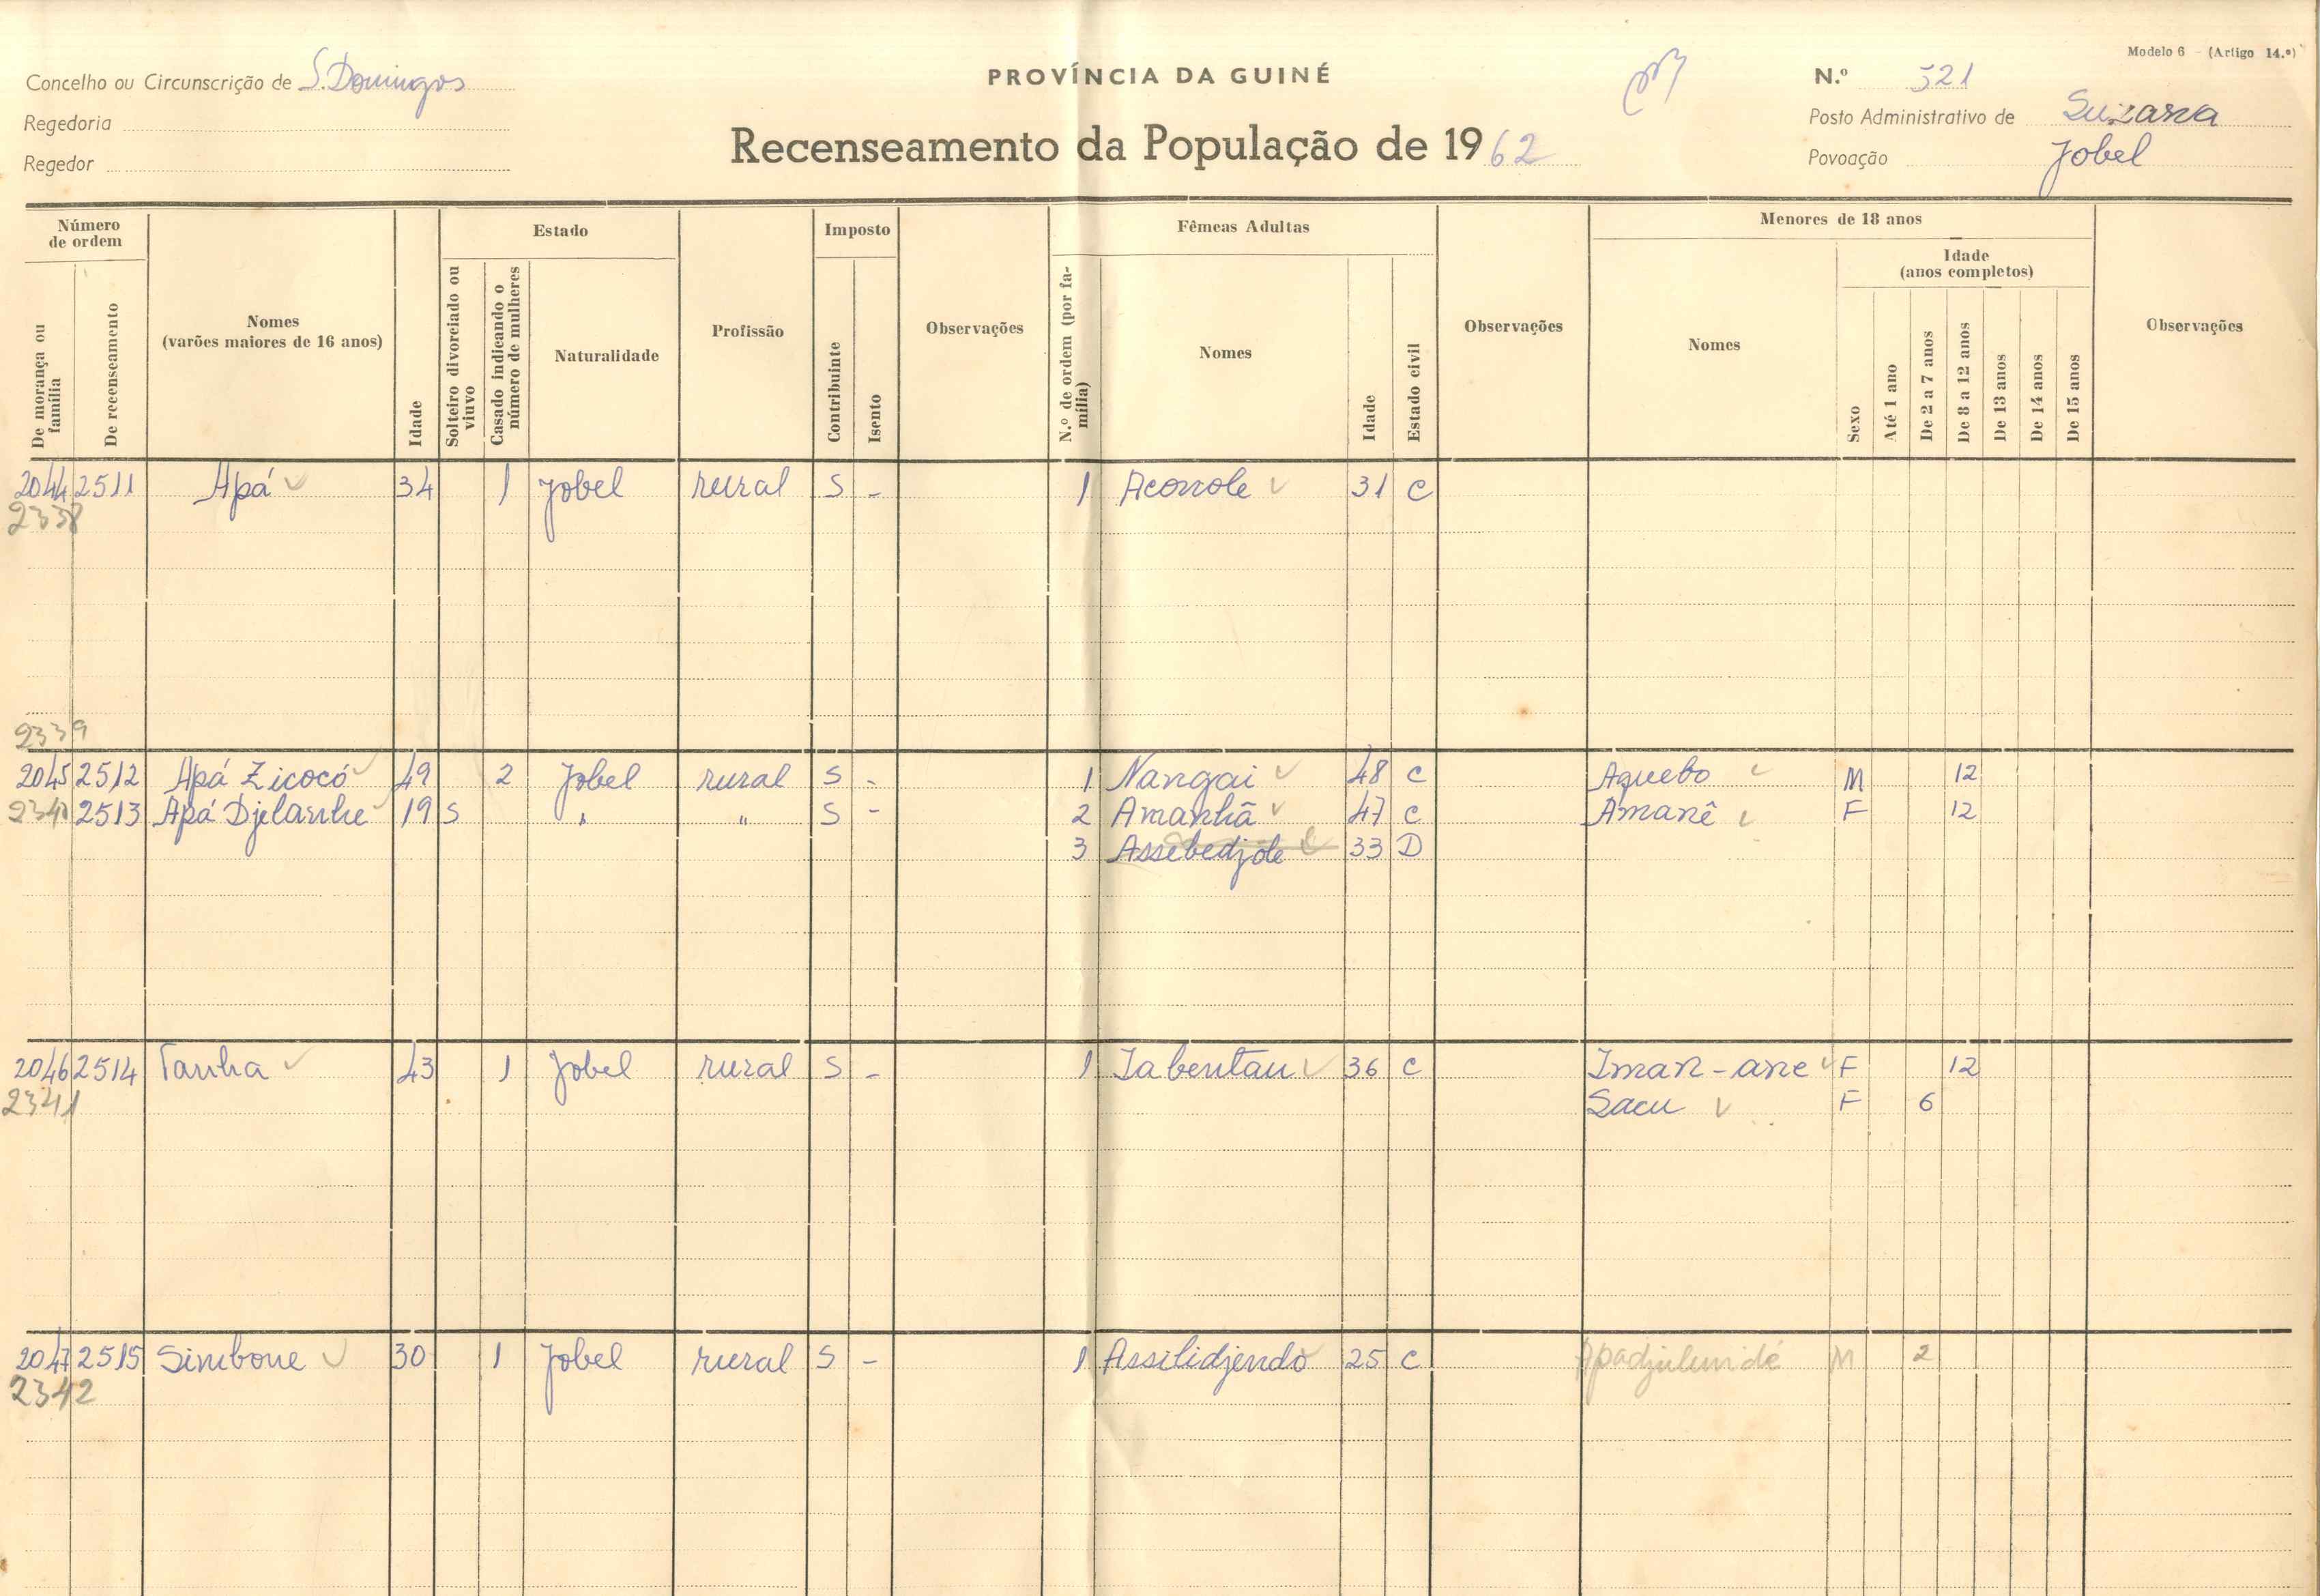 Modelo 6 - (Artigo 14.º)
Concelho ou Circunscrição de S. Domingos
PROVÍNCIA DA GUINÉ
N.º 521
Regedoria
Posto Administrativo de Suzana
Regedor
Recenseamento da População de 1962
Povoação Jobel
Número de ordem
Estado
Imposto
Fêmeas Adultas
Menores de 18 anos
Idade (anos completos)
De morança ou família
De recenseamento
Nomes (varões maiores de 16 anos)
Idade
Solteiro divorciado ou viuvo
Casado indicando o número de mulheres
Naturalidade
Profissão
Contribuinte
Isento
Observações
N.º de ordem (por família)
Nomes
Idade
Estado civil
Observações
Nomes
Sexo
Até 1 ano
De 2 a 7 anos
De 8 a 12 anos
De 13 anos
De 14 anos
De 15 anos
Observações
2044 2511 Apá 34 1 Jobel rural S - 1 Aconole 31 C
2338
2339
2045 2512 Apá Zicocó 49 2 Jobel rural S - 1 Nangai 48 C Aquebo M 12
2340 2513 Apá Djelanhe 19 S " " S - 2 Amanhã 47 C Amanê F 12
3 Assebedjole 33 D
2046 2514 Tanha 43 1 Jobel rural S - 1 Iabentau 36 C Iman-ane F 12
2341 Sacu F 6
2047 2515 Simbone 30 1 Jobel rural S - 1 Assilidjendo 25 C Apadjulundé M 2
2342